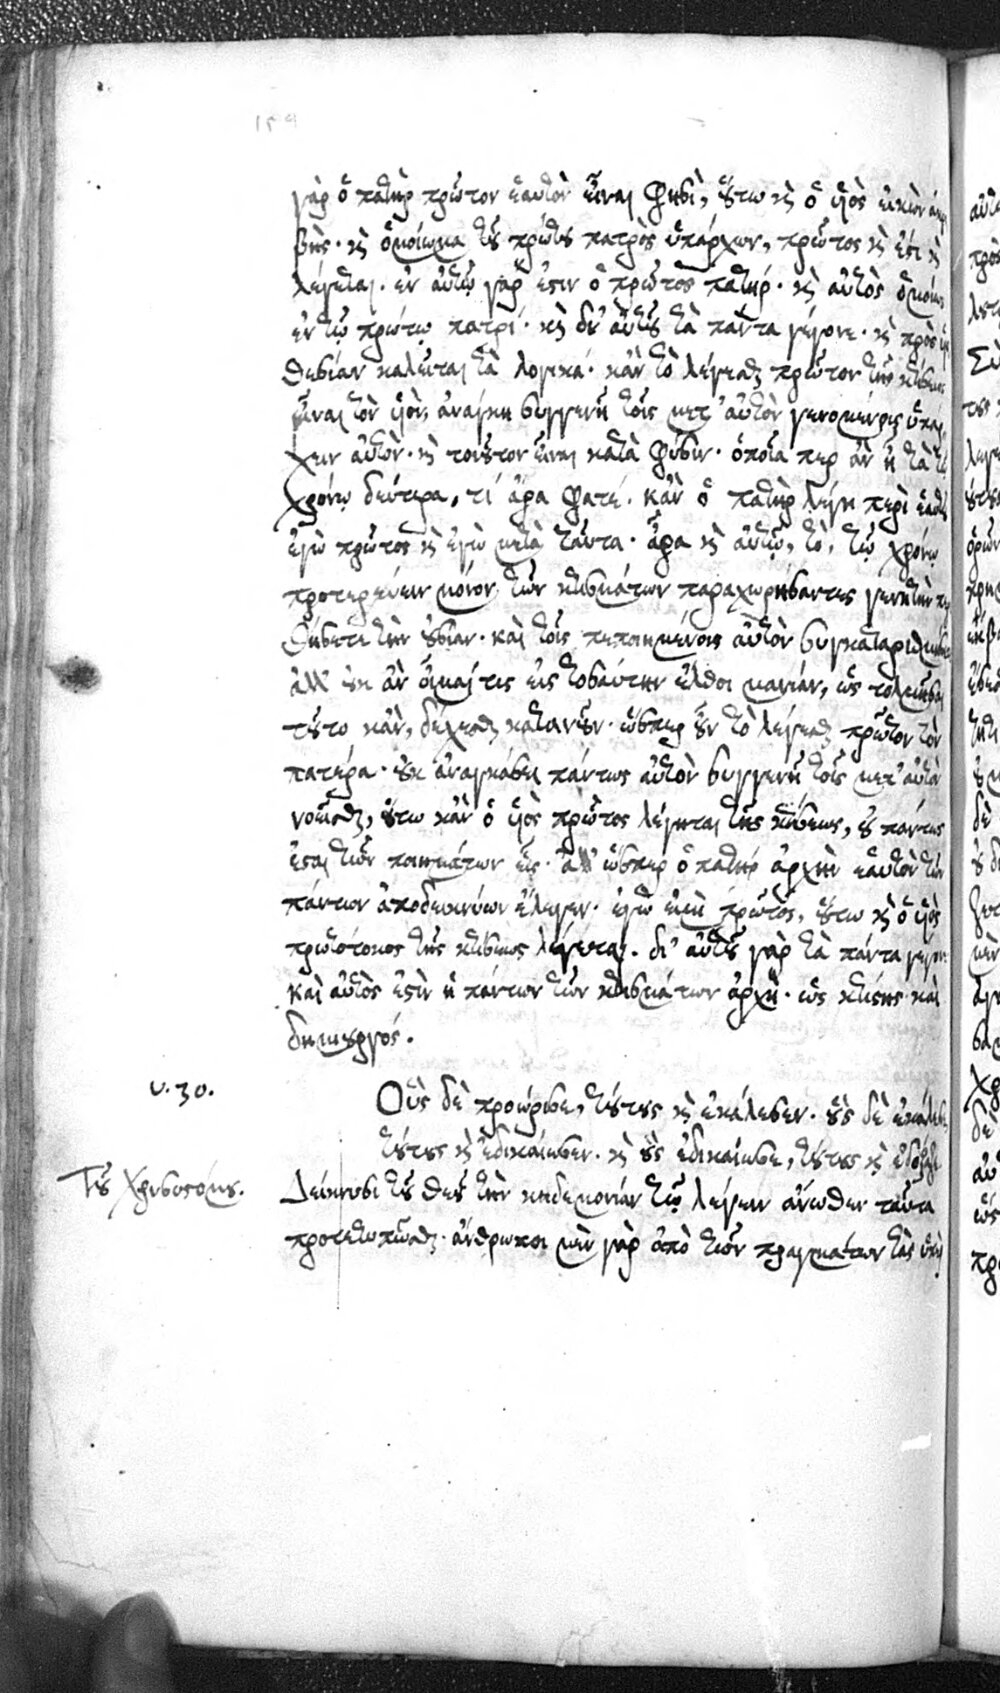 γὰρ ὁ πατὴρ πρῶτον ἑαυτὸν εἶναι φησὶ, οὕτω καὶ ὁ υἱὸς εἰκὼν ἀκρι
βὴς· καὶ ὁμοίωμα τοῦ πρώτου πατρὸς ὑπάρχων, πρῶτος καὶ ἔστι καὶ
λέγεται. ἐν αὐτῷ γὰρ ἔστιν ὁ πρῶτος πατήρ· καὶ αὐτὸς ὁμοίως
ἐν τῷ πρώτῳ πατρί· καὶ δι' αὐτοῦ τὰ πάντα γέγονε· καὶ πρὸς
θεσίαν καλεῖται τὰ λογικά· κἂν τὸ λέγεσθαι πρῶτον τῆς κτίσεως
εἶναι τὸν υἱὸν, ἀνάγκη συγγενῆ τοῖς μετ' αὐτὸν γενομένοις ὑπάρ
χειν αὐτὸν· καὶ τοιοῦτον εἶναι κατὰ φύσιν· ὁποῖά περ ἂν ᾖ τὰ τῷ
χρόνῳ δεύτερα, τί ἄρα φατέ· κἂν ὁ πατὴρ λέγῃ περὶ ἑαυτοῦ
ἐγὼ πρῶτος καὶ ἐγὼ μετὰ ταῦτα· ἆρα καὶ αὐτῷ, τὸ, τῷ χρόνῳ
προτερεύειν μόνον τῶν κτισμάτων παραχωρήσαντες γενητὴν
θήσετε τὴν οὐσίαν· καὶ τοῖς πεποιημένοις αὐτὸν συγκαταριθμήσετε
ἀλλ' οὐκ ἂν οἶμαί τις εἰς τοσαύτην ἔλθοι μανίαν, ὡς τολμῆσαι
τοῦτο κἂν, δέχεσθαι κατανοῦν· ὥσπερ οὖν τὸ λέγεσθαι πρῶτον τὸν
πατέρα· οὐκ ἀναγκάσει πάντως αὐτὸν συγγενῆ τοῖς μετ' αὐτὸν
νοεῖσθαι, οὕτω κἂν ὁ υἱὸς πρῶτος λέγηται τῆς κτίσεως, οὐ πάντως
ἔσται τῶν ποιημάτων εἷς· ἀλλ' ὥσπερ ὁ πατὴρ ἀρχὴν ἑαυτὸν τῶν
πάντων ἀποδεικνύων ἔλεγεν· ἐγώ εἰμι πρῶτος, οὕτω καὶ ὁ υἱὸς
πρωτότοκος τῆς κτίσεως λέγεται. δι' αὐτοῦ γὰρ τὰ πάντα γέγονε
καὶ αὐτὸς ἐστὶν ἡ πάντων τῶν κτισμάτων ἀρχὴ· ὡς κτίστης καὶ
δημιουργός.
υ. 30.
Οὓς δὲ προώρισε, τούτους καὶ ἐκάλεσεν· οὓς δὲ ἐκάλεσε
τούτους καὶ ἐδικαίωσεν· καὶ οὓς ἐδικαίωσε, τούτους καὶ ἐδόξασε
Τοῦ Χρυσοστόμου.
Δείκνυσι τοῦ θεοῦ τὴν κηδεμονίαν τῷ λέγειν ἄνωθεν ταῦτα
προτετυπῶσθαι· ἄνθρωποι μὲν γὰρ ἀπὸ τῶν πραγμάτων τὰς